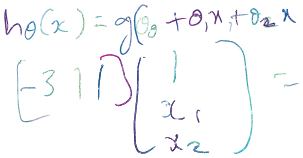 hθ(x) = g(θ0 + θ1x1 + θ2x
[-3 1 1] [1
x1
x2] =